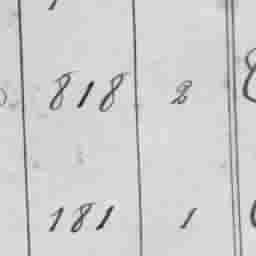 818 2
181 1